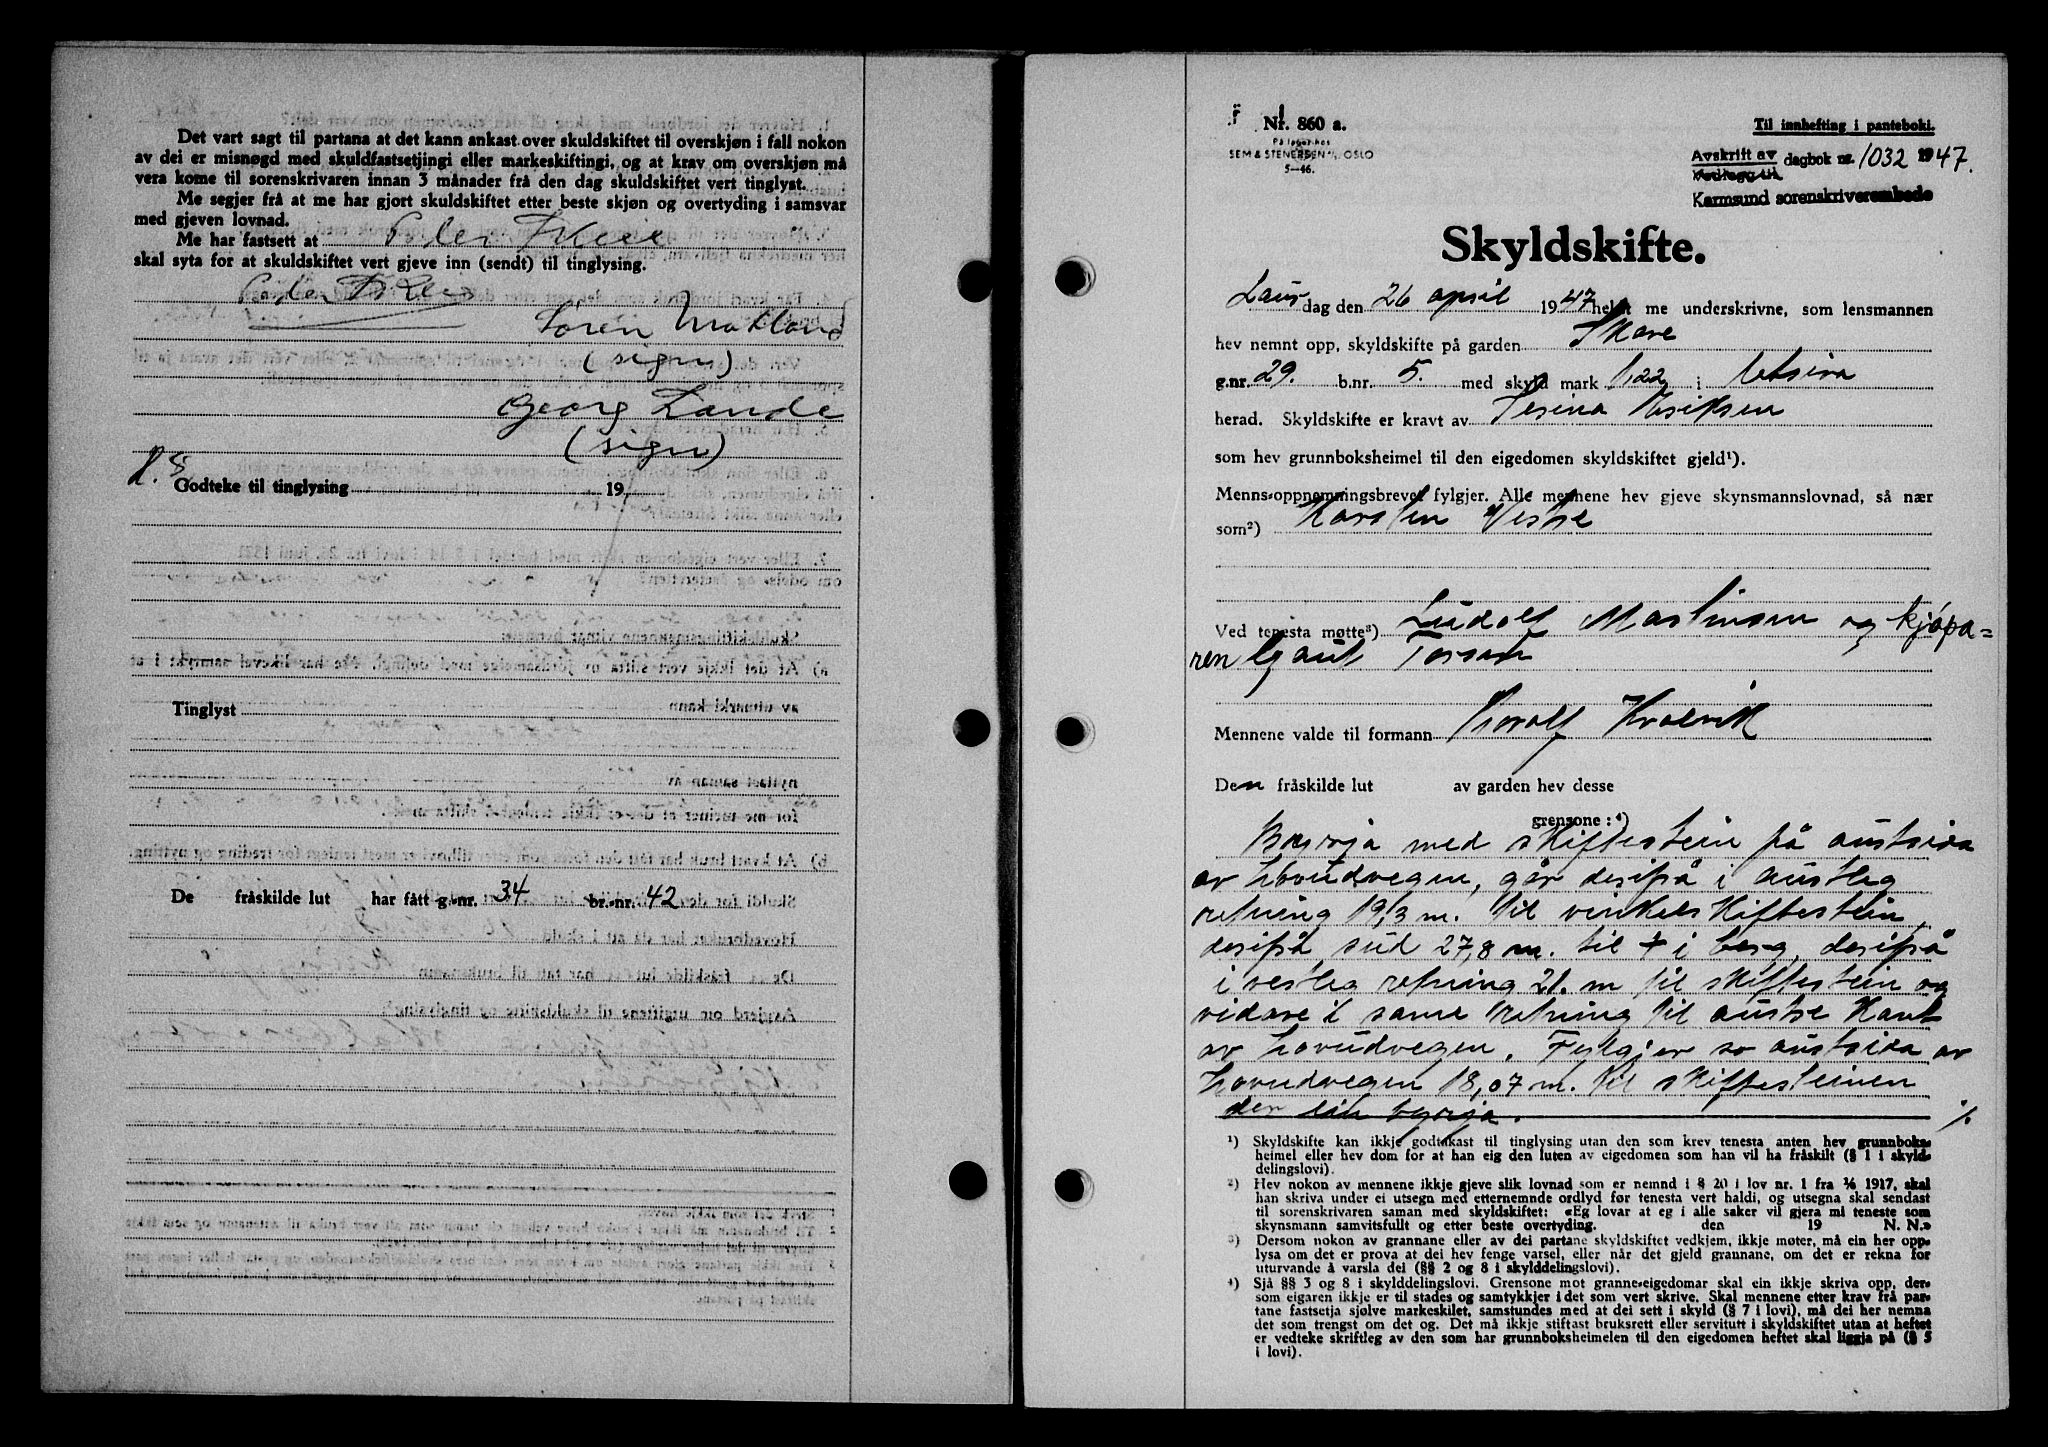 Det vart sagt til partana at det kann ankast over skuldskiftet til overskjøn i fall nokon
av dei er misnøgd med skuldfastsetjingi eller markeskiftingi, og at krav om overskjøn må
vera kome til sorenskrivaren innan 3 månader frå den dag skuldskiftet vert tinglyst.
Me segjer frå at me har gjort skuldskiftet etter beste skjøn og overtyding i samsvar
med gjeven lovnad.
Me har fastsett at Peder Skeie
skal syta for at skuldskiftet vert gjeve inn (sendt) til tinglysing.
Peder Skeie
Søren Matland
(sign)
Georg Lande
(sign)
Godteke til tinglysing 19
Tinglyst
De fråskilde lut har fått g.nr. 34 br.nr. 42
Nr. 860 a.
På lager hos
SEM & STENERSEN A/S, OSLO
5–46.
Til innhefting i panteboki.
Avskrift av dagbok nr. 1032 1947.
Vedlegg til
Karmsund sorenskriverembede
Skyldskifte.
Laurdag den 26 april 1947 heldt me underskrivne, som lensmannen
hev nemnt opp, skyldskifte på garden Skare
g.nr. 29. b.nr. 5. med skyld mark 1,22 i Utsira
herad. Skyldskifte er kravt av Sesina Eriksen
som hev grunnboksheimel til den eigedomen skyldskiftet gjeld¹).
Menns-oppnemningsbrevet fylgjer. Alle mennene hev gjeve skynsmannslovnad, so nær
som²) Karsten Vestre
Ved tenesta møtte³) Ludolf Martinsen og kjøpa=
ren Gaut
Mennene valde til formann Torolf Kvalvik
Den fråskilde lut av garden hev desse
grensone:⁴)
Byrja med skiftestein på austsida
av hovudvegen, går derifrå i austleg
retning 19,3 m. til vinkelskiftestein,
derifrå sud 27,8 m. til + i berg, derifrå
i vestleg retning 21. m til skiftestein og
vidare i same retning til austre kant
av hovudvegen. Fylgjer so austsida av
hovudvegen 18,07 m. til skiftesteinen
der ein byrja. ./.
¹) Skyldskifte kan ikkje godtakast til tinglysing utan den som krev tenesta anten hev grunnboks-
heimel eller hev dom for at han eig den luten av eigedomen som han vil ha fråskilt (§ 1 i skyld-
delingslovi).
²) Hev nokon av mennene ikkje gjeve slik lovnad som er nemnd i § 20 i lov nr. 1 fra 1/6 1917, skal
han skriva under ei utsegn med etternemnde ordlyd før tenesta vert haldi, og utsegna skal sendast
til sorenskrivaren saman med skyldskiftet: «Eg lovar at eg i alle saker vil gjera mi teneste som
skynsmann samvitsfullt og etter beste overtyding. den 19 N. N.»
³) Dersom nokon av grannane eller av dei partane skyldskiftet vedkjem, ikkje møter, må ein her opp-
lysa om det er prova at dei hev fenge varsel, eller når det gjeld grannane, om de er rekna for
uturvande å varsla dei (§§ 2 og 8 i skylddelingslovi).
⁴) Sjå §§ 3 og 8 i skylddelingslovi. Grensone mot granne-eigedomar skal ein ikkje skriva opp, der-
som eigaren ikkje er til stades og samtykkjer i det som vert skrive. Skal mennene etter krav frå par-
tane fastsetja sjølve markeskilet, samstundes med at dei sett i skyld (§ 7 i lovi), må dei her nemna
det som trengst om det og. Det må ikkje stiftast bruksrett eller servitutt i skyldskiftet utan at heftet
er vedteke skriftleg av den som har grunnboksheimelen til den eigedomen heftet skal liggja på (§ 5
i lovi).